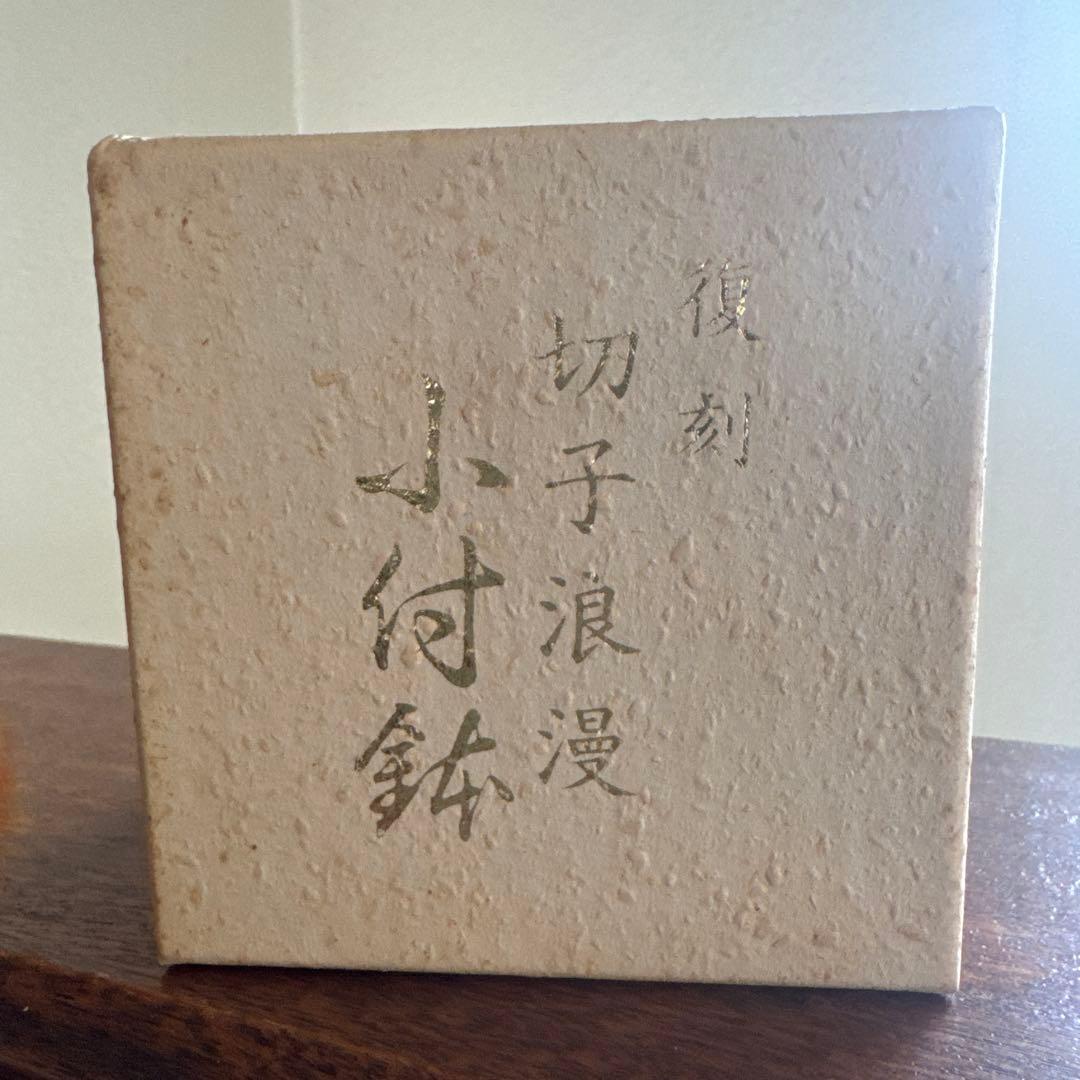 復刻
切子浪漫
小付鉢